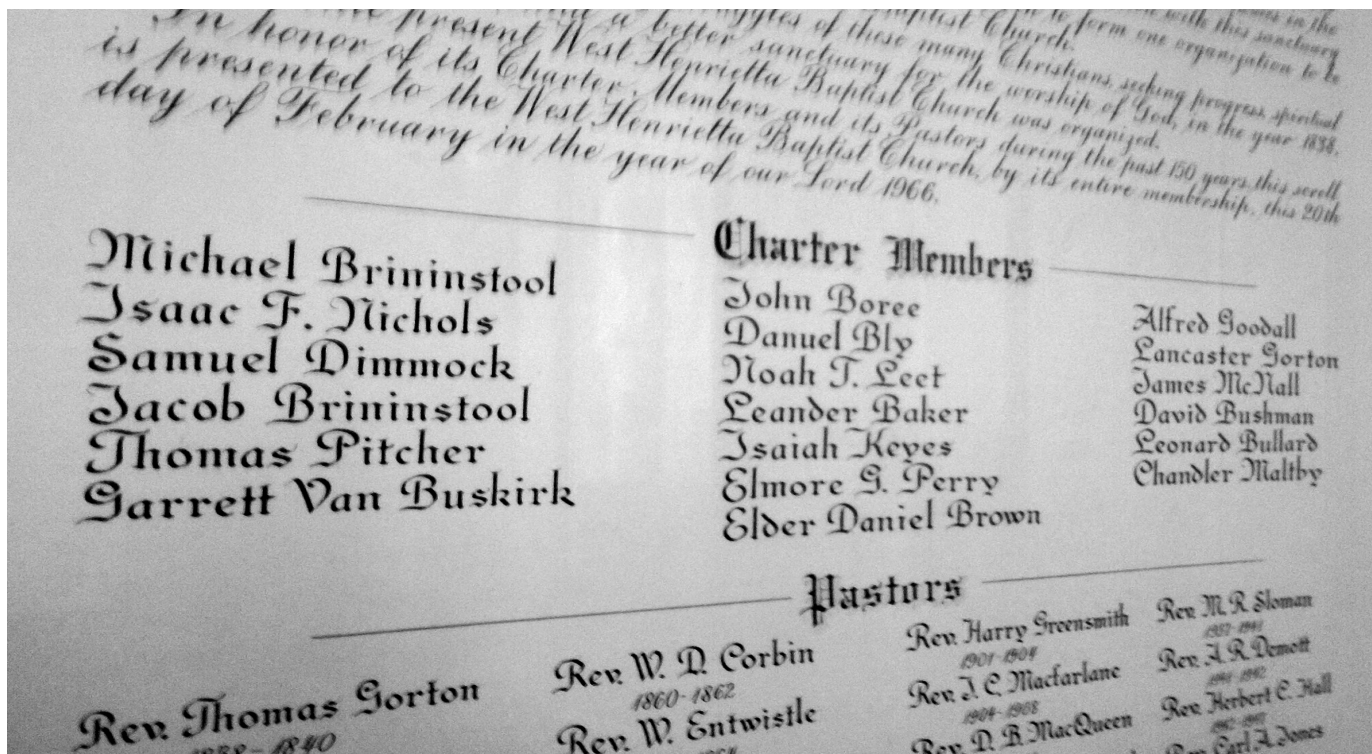 names in the
with this sanctuary
to form one organization to be
Baptist Church.
struggles of these many Christians, seeking progress, spiritual
and a better sanctuary for the worship of God, in the year 1838,
present West Henrietta Baptist Church was organized.
In honor of its Charter Members and its Pastors during the past 150 years, this scroll
is presented to the West Henrietta Baptist Church, by its entire membership, this 20th
day of February in the year of our Lord 1966.
Charter Members
Michael Brininstool
Isaac F. Nichols
Samuel Dimmock
Jacob Brininstool
Thomas Pitcher
Garrett Van Buskirk
John Boree
Danuel Bly
Noah T. Leet
Leander Baker
Isaiah Keyes
Elmore G. Perry
Elder Daniel Brown
Alfred Goodall
Lancaster Gorton
James McNall
David Bushman
Leonard Bullard
Chandler Maltby
Pastors
Rev. Thomas Gorton
1838-1840
Rev. W. D. Corbin
1860-1862
Rev. W. Entwistle
Rev. Harry Greensmith
1901-1904
Rev. J. C. Macfarlane
1904-1908
Rev. D. B. MacQueen
Rev. M. R. Sloman
1937-1941
Rev. A. R. Demott
1941-1942
Rev. Herbert E. Hall
Rev. Earl A. Jones